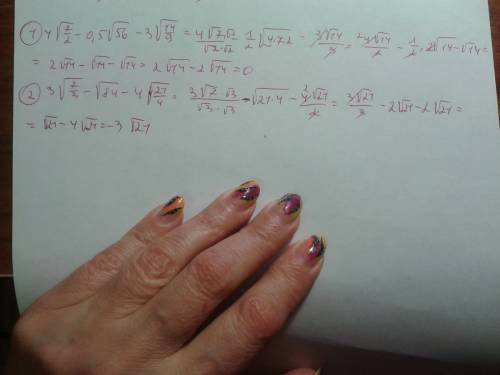 ① 4√(7/2) - 0,5√56 - 3√(14/9) = (4√7·√2)/(√2·√2) - 1/2 √(4·7·2) - (3√14)/3 = (4√14)/2 - 1/2·2√14 - √14 =
= 2√14 - √14 - √14 = 2√14 - 2√14 = 0
② 3√(7/3) - √84 - 4√(21/4) = (3√7·√3)/(√3·√3) - √(21·4) - (4√21)/2 = (3√21)/3 - 2√21 - 2√21 =
= √21 - 4√21 = -3√21